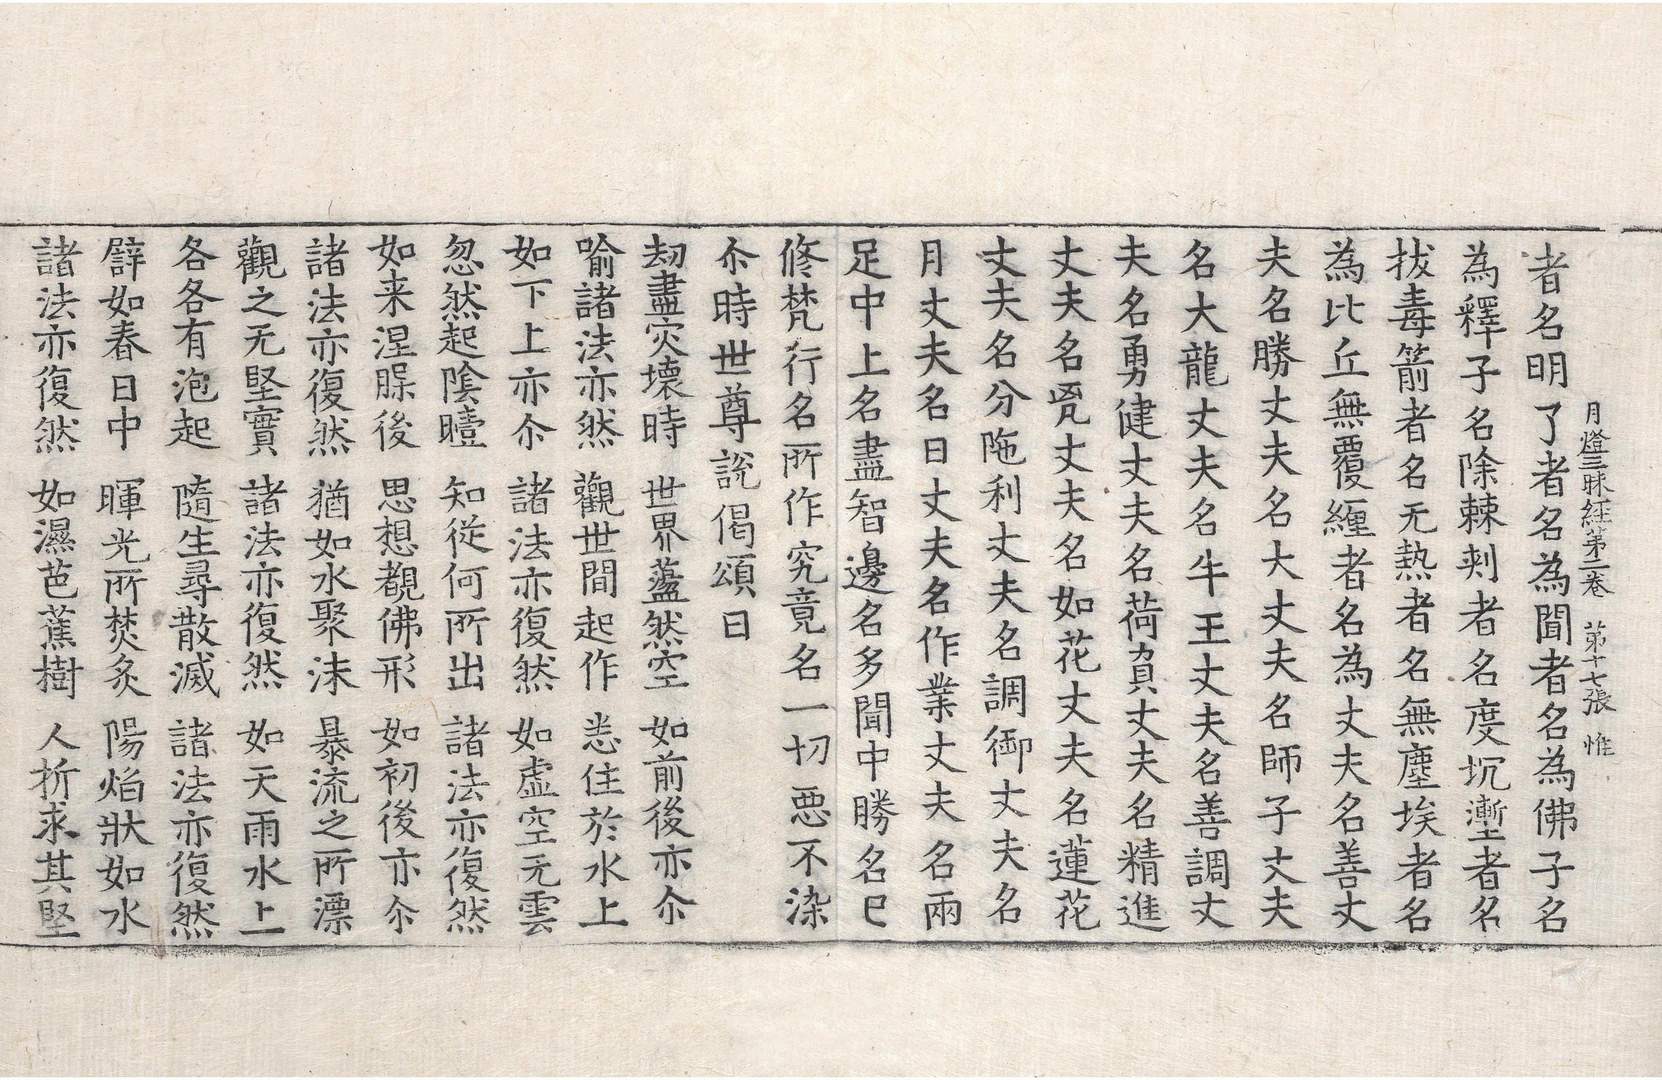 月燈三昧經第二卷 第十七張 惟
者名明了者名為聞者名為佛子名
為釋子名除棘刺者名度坑壍者名
拔毒箭者名无熱者名無塵埃者名
為比丘無覆纏者名為丈夫名善丈
夫名勝丈夫名大丈夫名師子丈夫
名大龍丈夫名牛王丈夫名善調丈
夫名勇健丈夫名荷負丈夫名精進
丈夫名兠丈夫名如花丈夫名蓮花
丈夫名分陁利丈夫名調御丈夫名
月丈夫名日丈夫名作業丈夫名兩
足中上名盡智邊名多聞中勝名已
修梵行名所作究竟名一切惡不染
尒時世尊說偈頌曰
劫盡灾壞時 世界蕩然空 如前後亦尒
喻諸法亦然 觀世間起作 恙住於水上
如下上亦尒 諸法亦復然 如虛空无雲
忽然起陰曀 知從何所出 諸法亦復然
如来涅槃後 思想覩佛形 如初後亦尒
諸法亦復然 猶如水聚沫 暴流之所漂
觀之无堅實 諸法亦復然 如天雨水上
各各有泡起 隨生尋散滅 諸法亦復然
譬如春日中 暉光所焚炙 陽焰狀如水
諸法亦復然 如濕芭蕉樹 人折求其堅